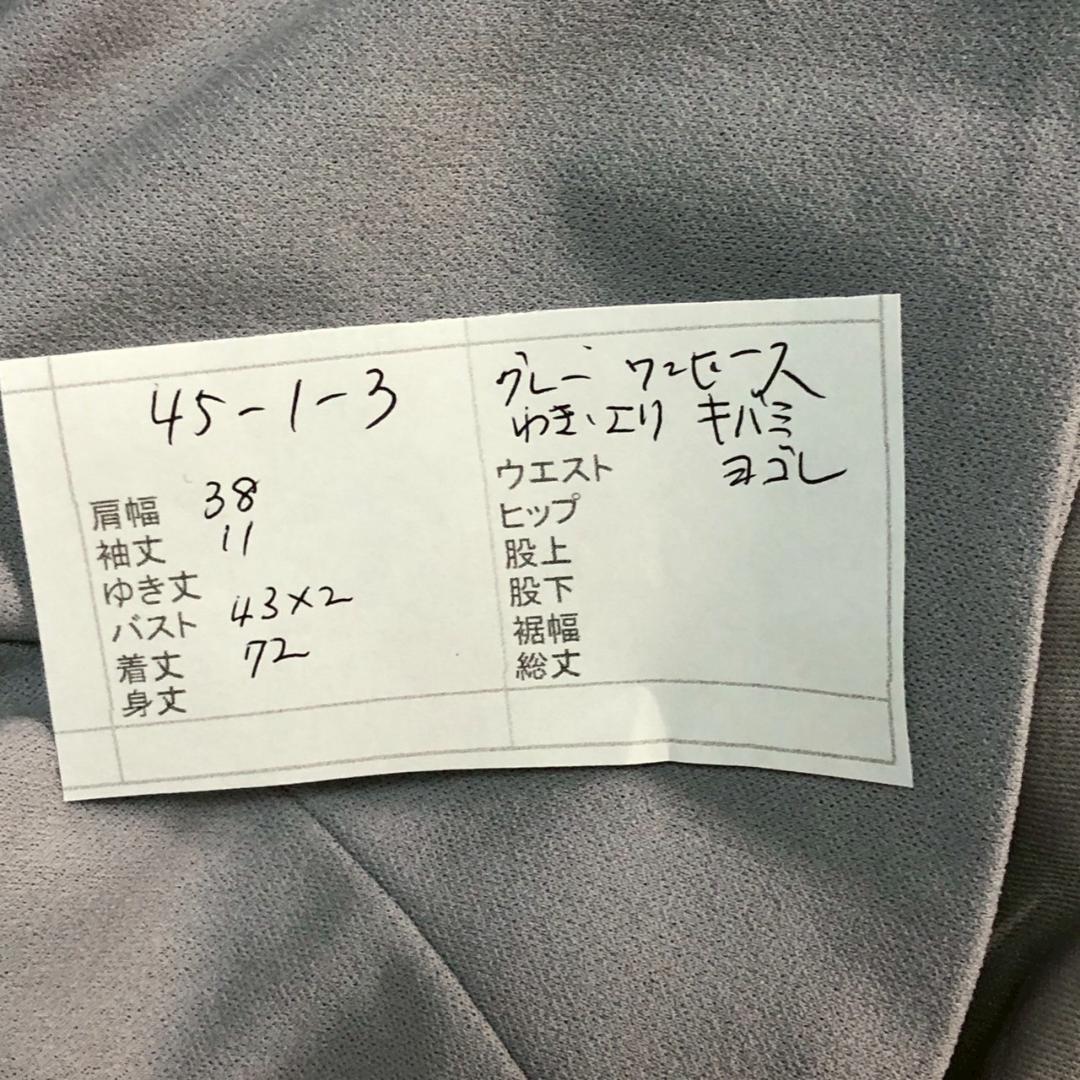 45-1-3
肩幅 38
袖丈 11
ゆき丈
バスト 43×2
着丈 72
身丈
グレー ワンピース
わき、エリ キバミ
ヨゴレ
ウエスト
ヒップ
股上
股下
裾幅
総丈